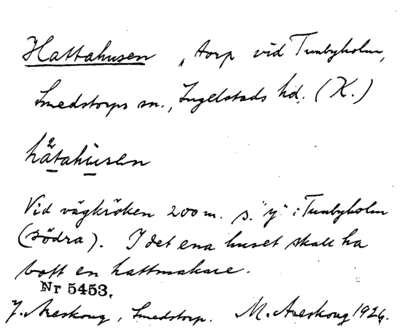 Hattahusen, torp vid Tunbyholm,
Smedstorps sn., Ingelstads hd. (K.)
hàtahùsen
Vid vägkröken 200 m. s. "y" i Tunbyholm
(södra). I det ena huset skall ha
bott en hattmakare.
Nr 5453.
J. Areskoug, Smedstorp. M. Areskoug 1926.